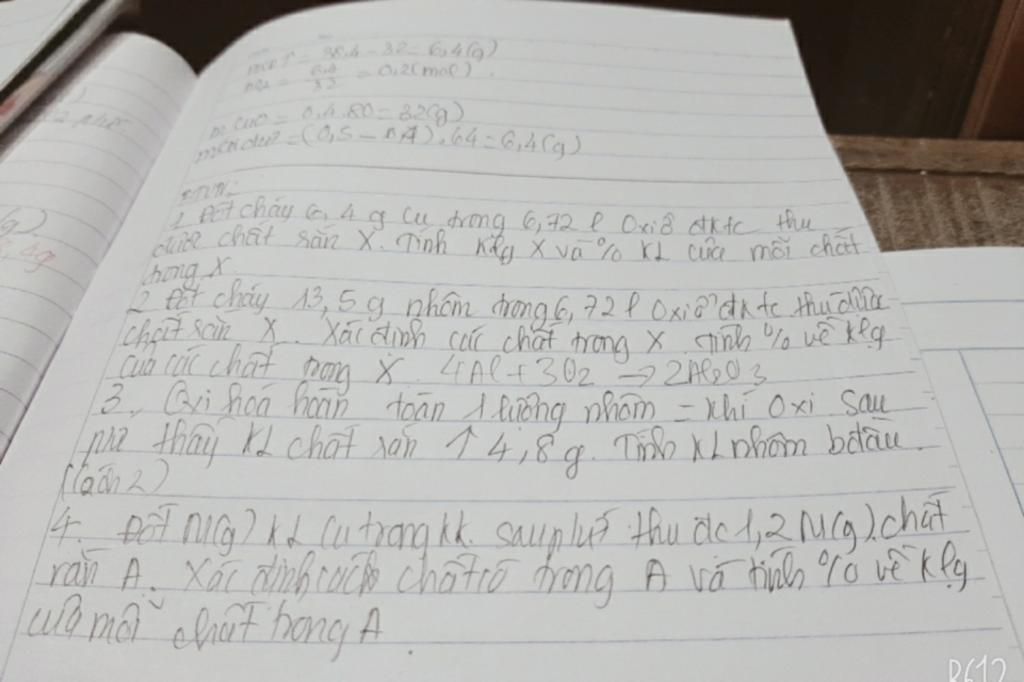 = 38,4 - 32 = 6,4(g)
nO2 = 6,4/32 = 0,2(mol).
m CuO = 0,4.80 = 32(g)
mCu dư = (0,5 - 0,4).64 = 6,4(g)
BTVN:
1 Đốt cháy 6,4 g Cu trong 6,72 l Oxi ở đktc thu
được chất rắn X. Tính klg X và % KL của mỗi chất
trong X
2 Đốt cháy 13,5 g nhôm trong 6,72 l Oxi ở đktc thu được
chất rắn X. Xác định các chất trong X. Tính % về klg
của các chất trong X. 4Al + 3O2 → 2Al2O3
3, Oxi hoá hoàn toàn 1 lượng nhôm = khí Oxi sau
thấy KL chất rắn ↑ 4,8 g. Tính KL nhôm bđầu.
(Cách 2)
4. Đốt M(g) KL Cu trong kk. sau thu đc 1,2 M(g) chất
rắn A. Xác định chất có trong A và tính % về klg
của mỗi chất trong A
R612